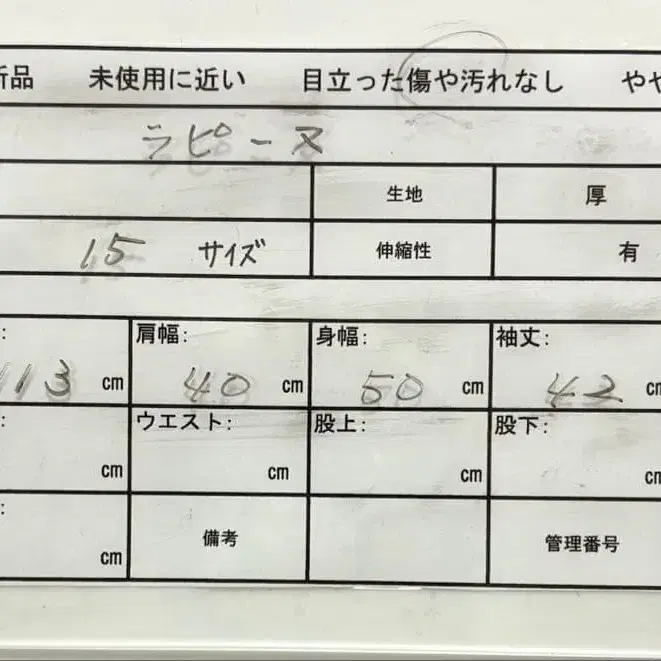 新品 未使用に近い 目立った傷や汚れなし やや
ラピーヌ
生地 厚
15 サイズ 伸縮性 有
: 肩幅: 身幅: 袖丈:
113 cm 40 cm 50 cm 42 cm
: ウエスト: 股上: 股下:
cm cm cm cm
: 備考 管理番号
cm